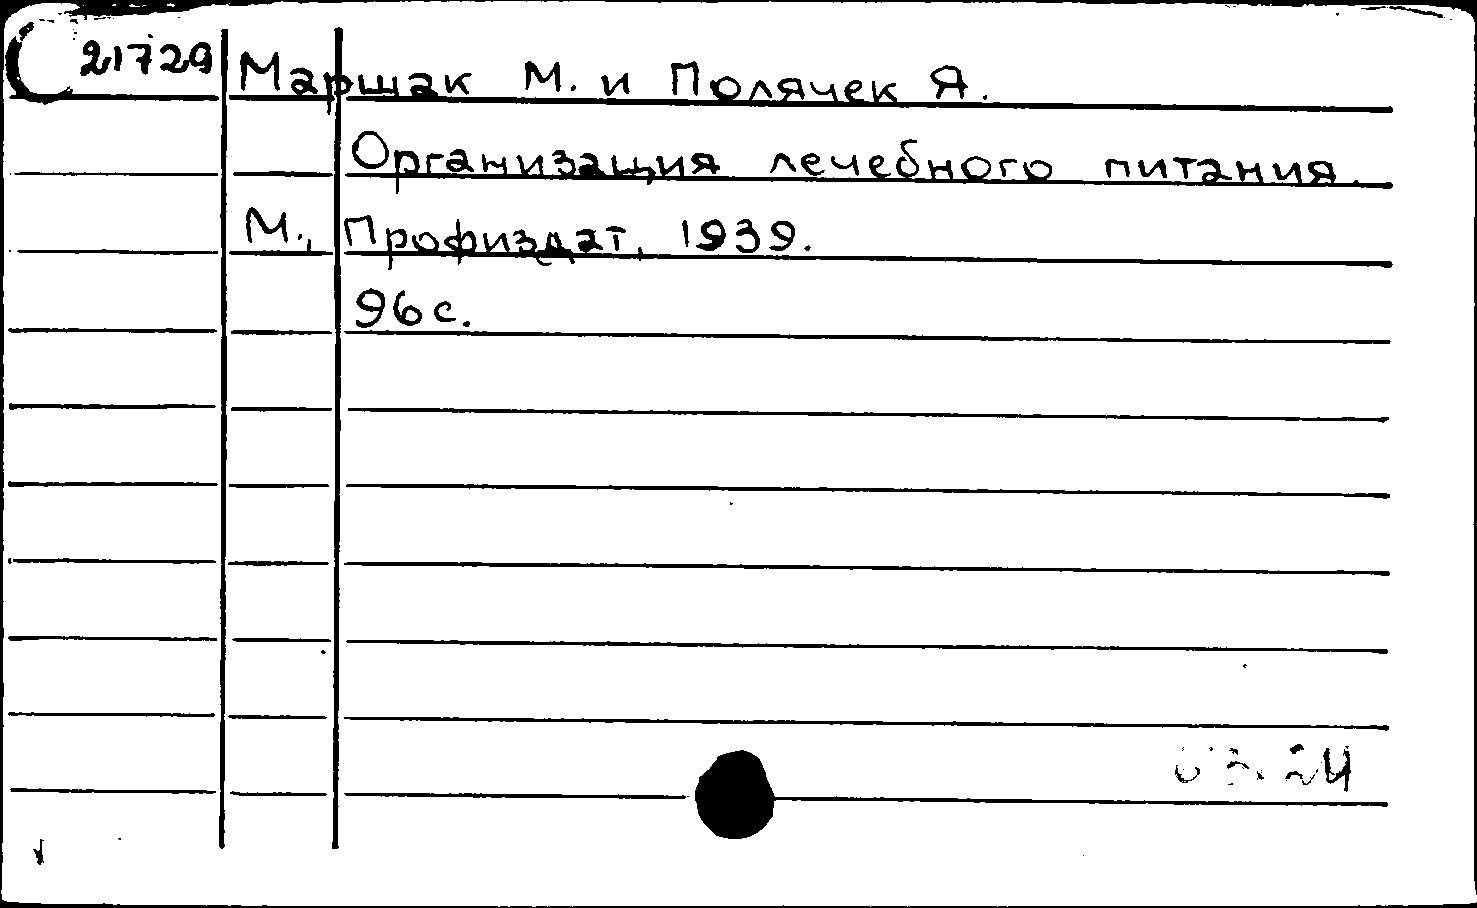 21729 Маршак М. и Полячек Я.
Организация лечебного питания.
М., Профиздат, 1939.
96 с.